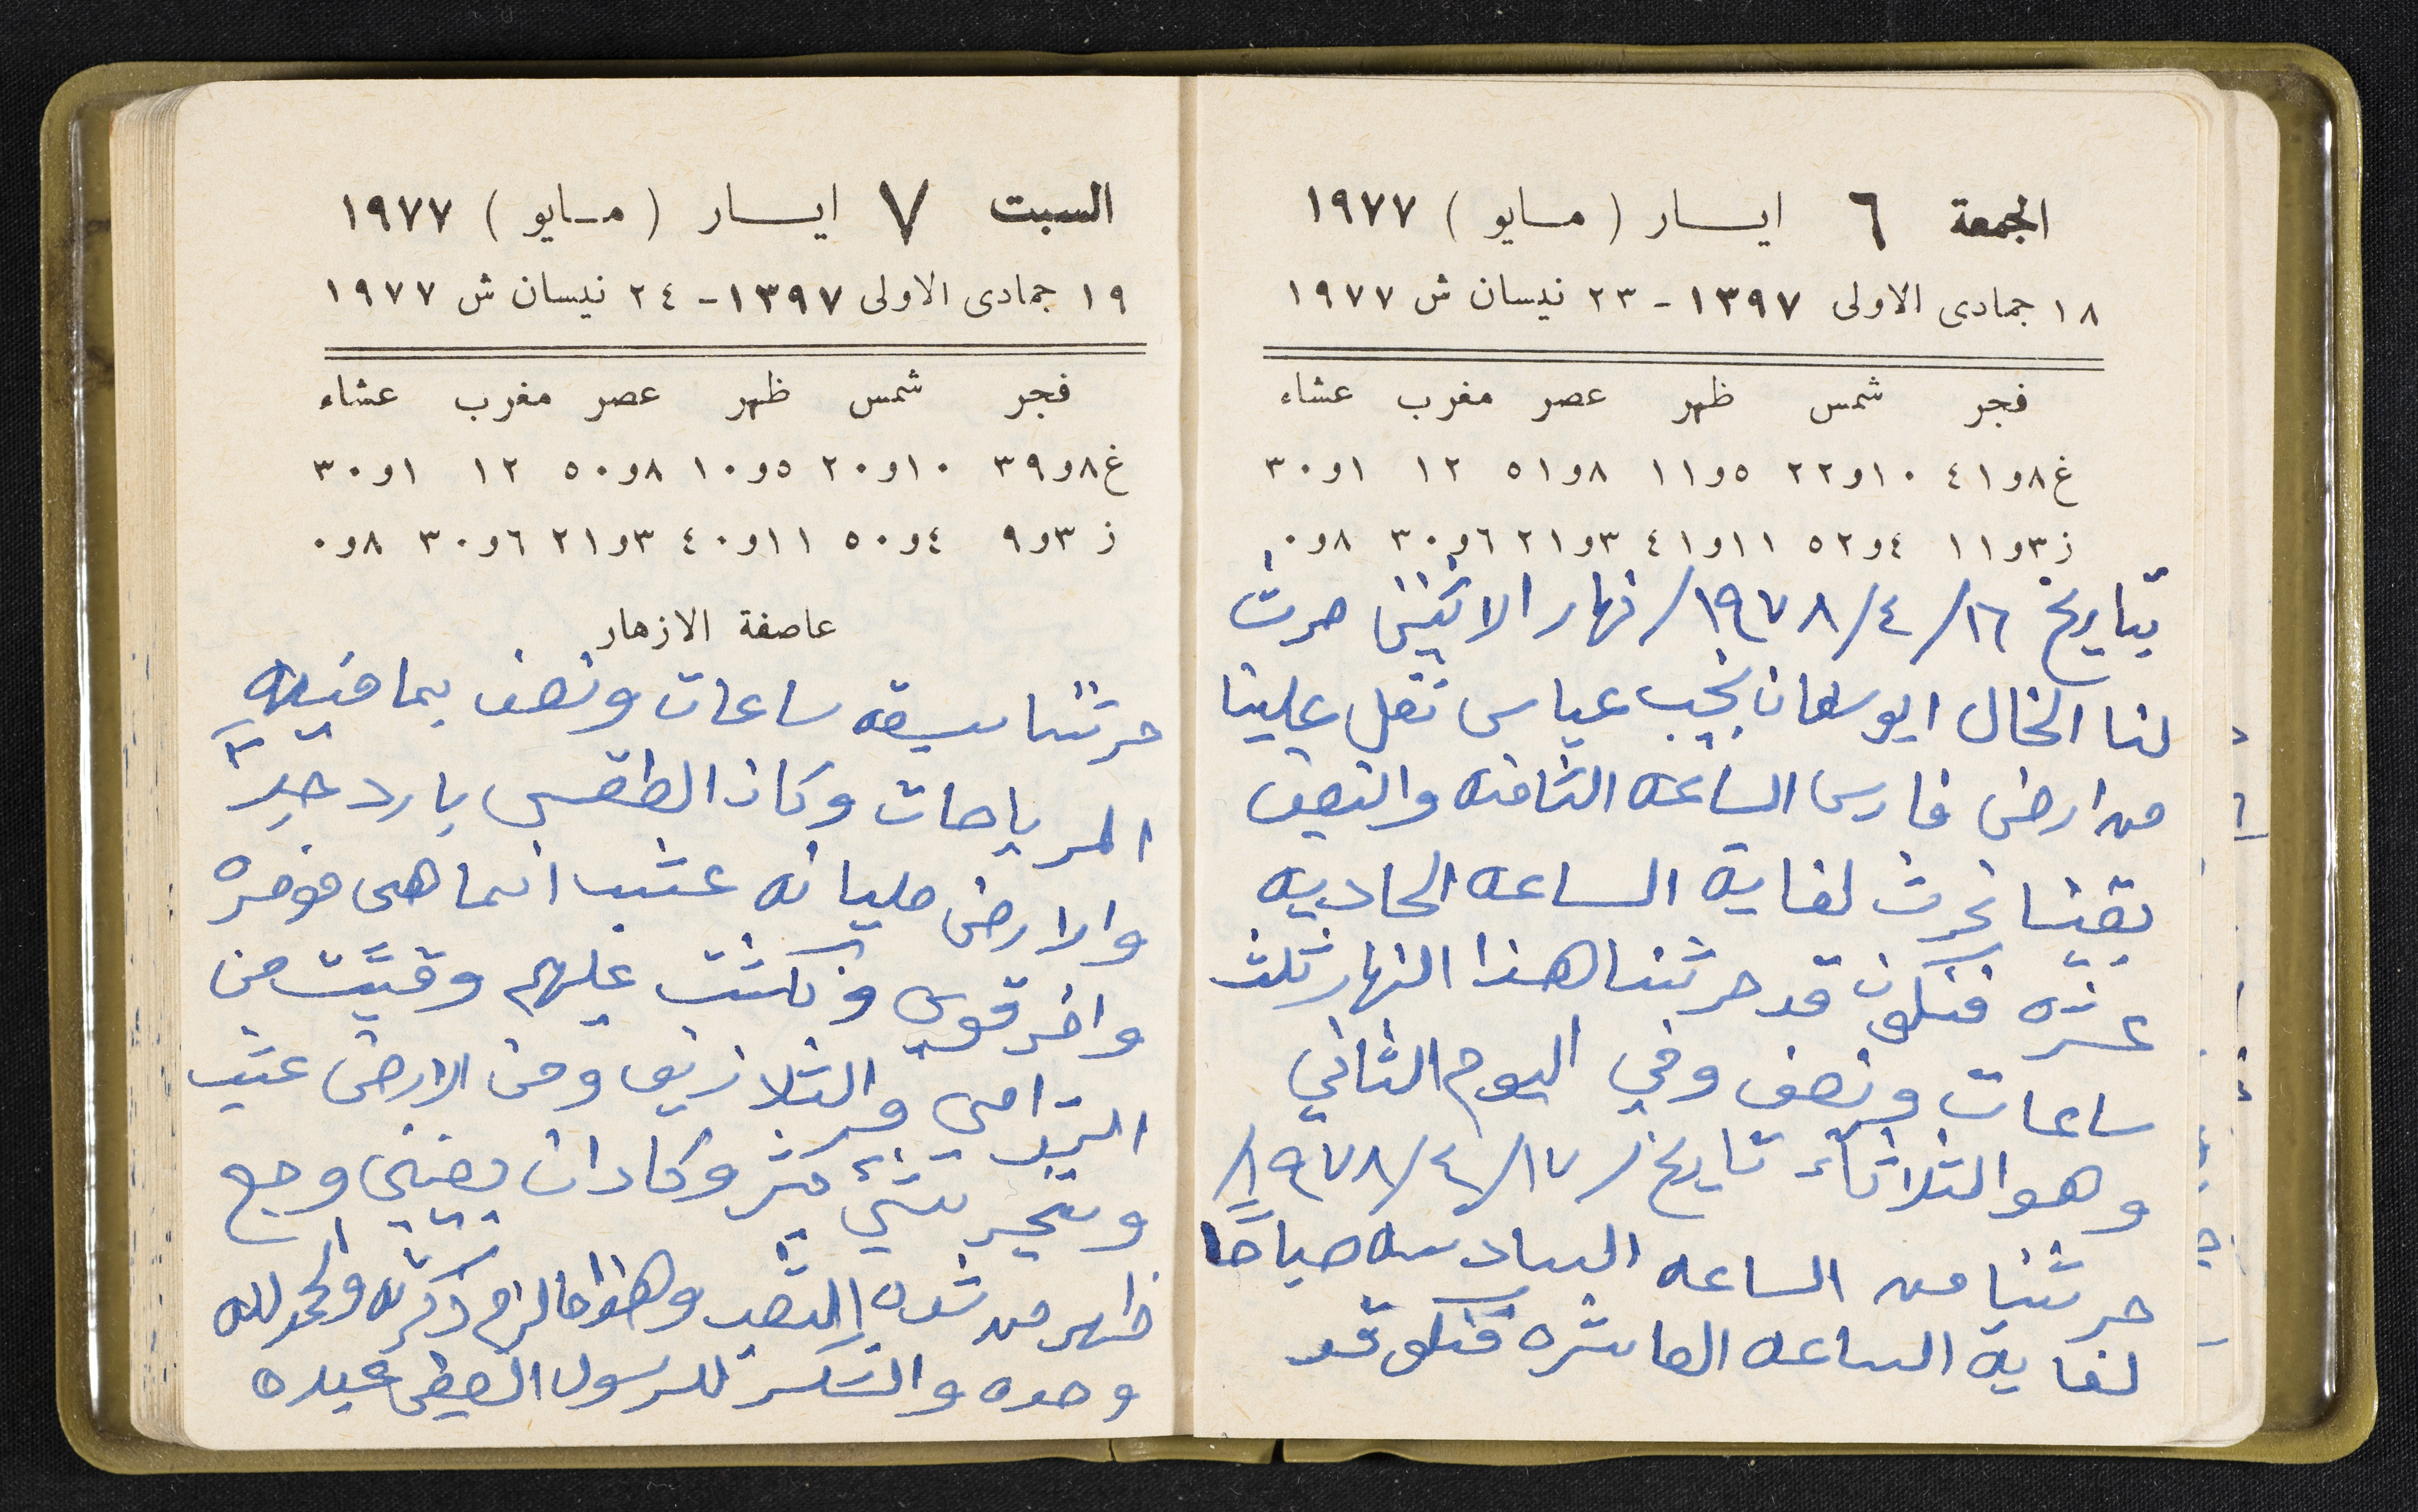 الجمعة ٦ ايسار (مسايو) ١٩٧٧
١٨ جمادى الاولى ١٣٩٧ - ٢٣ نيسان ش ١٩٧٧
فجر شمس ظهر عصر مغرب عشاء
غ ٨و٤١ ١٠و٢٢ ٥و١١ ٨و٥١ ١٢ ١و٣٠
ز ٣و١١ ٤و٥٢ ١١و٤١ ٣و٢١ ٦و٣٠ ٨و٠
بتاريخ ١٦/٤/١٩٧٨/ نهار الاثنين حرث
لنا الخال ابو سلمان نجيب عباس نقل علينا
من ارض فارس الساعه الثامنه والنصف
بقينا نحرث لغاية الساعه الحاديه
عشره فنكون قد حرثنا هذا النهار ثلث
ساعات ونصف وفي اليوم الثاني
وهو الثلاثاء تاريخ / ١٧/٤/١٩٧٨/
حرثنا من الساعه السادسه صباحًا
لغاية الساعه العاشره فنكون قد
السبت ٧ ايسار (مسايو) ١٩٧٧
١٩ جمادى الاولى ١٣٩٧ - ٢٤ نيسان ش ١٩٧٧
فجر شمس ظهر عصر مغرب عشاء
غ ٨و٣٩ ١٠و٢٠ ٥و١٠ ٨و٥٠ ١٢ ١و٣٠
ز ٣و٩ ٤و٥٠ ١١و٤٠ ٣و٢١ ٦و٣٠ ٨و٠
عاصفة الازهار
حرثنا سبعه ساعات ونصف بما فيه
المرباحات وكان الطقس بارد جدًا
والارض مليانه عشب انما هي موفره
وافر قوي وكشت عليهم وقيّت من
الترامي والتلازيق ومن الارض عشب
وشجر بشيء كثير وكاد ان يصيبني وجع
ظهر من شدة التعب وهذا ما لزم ذكره والحمد لله
وحده والشكر للرسول المصطفى عبده